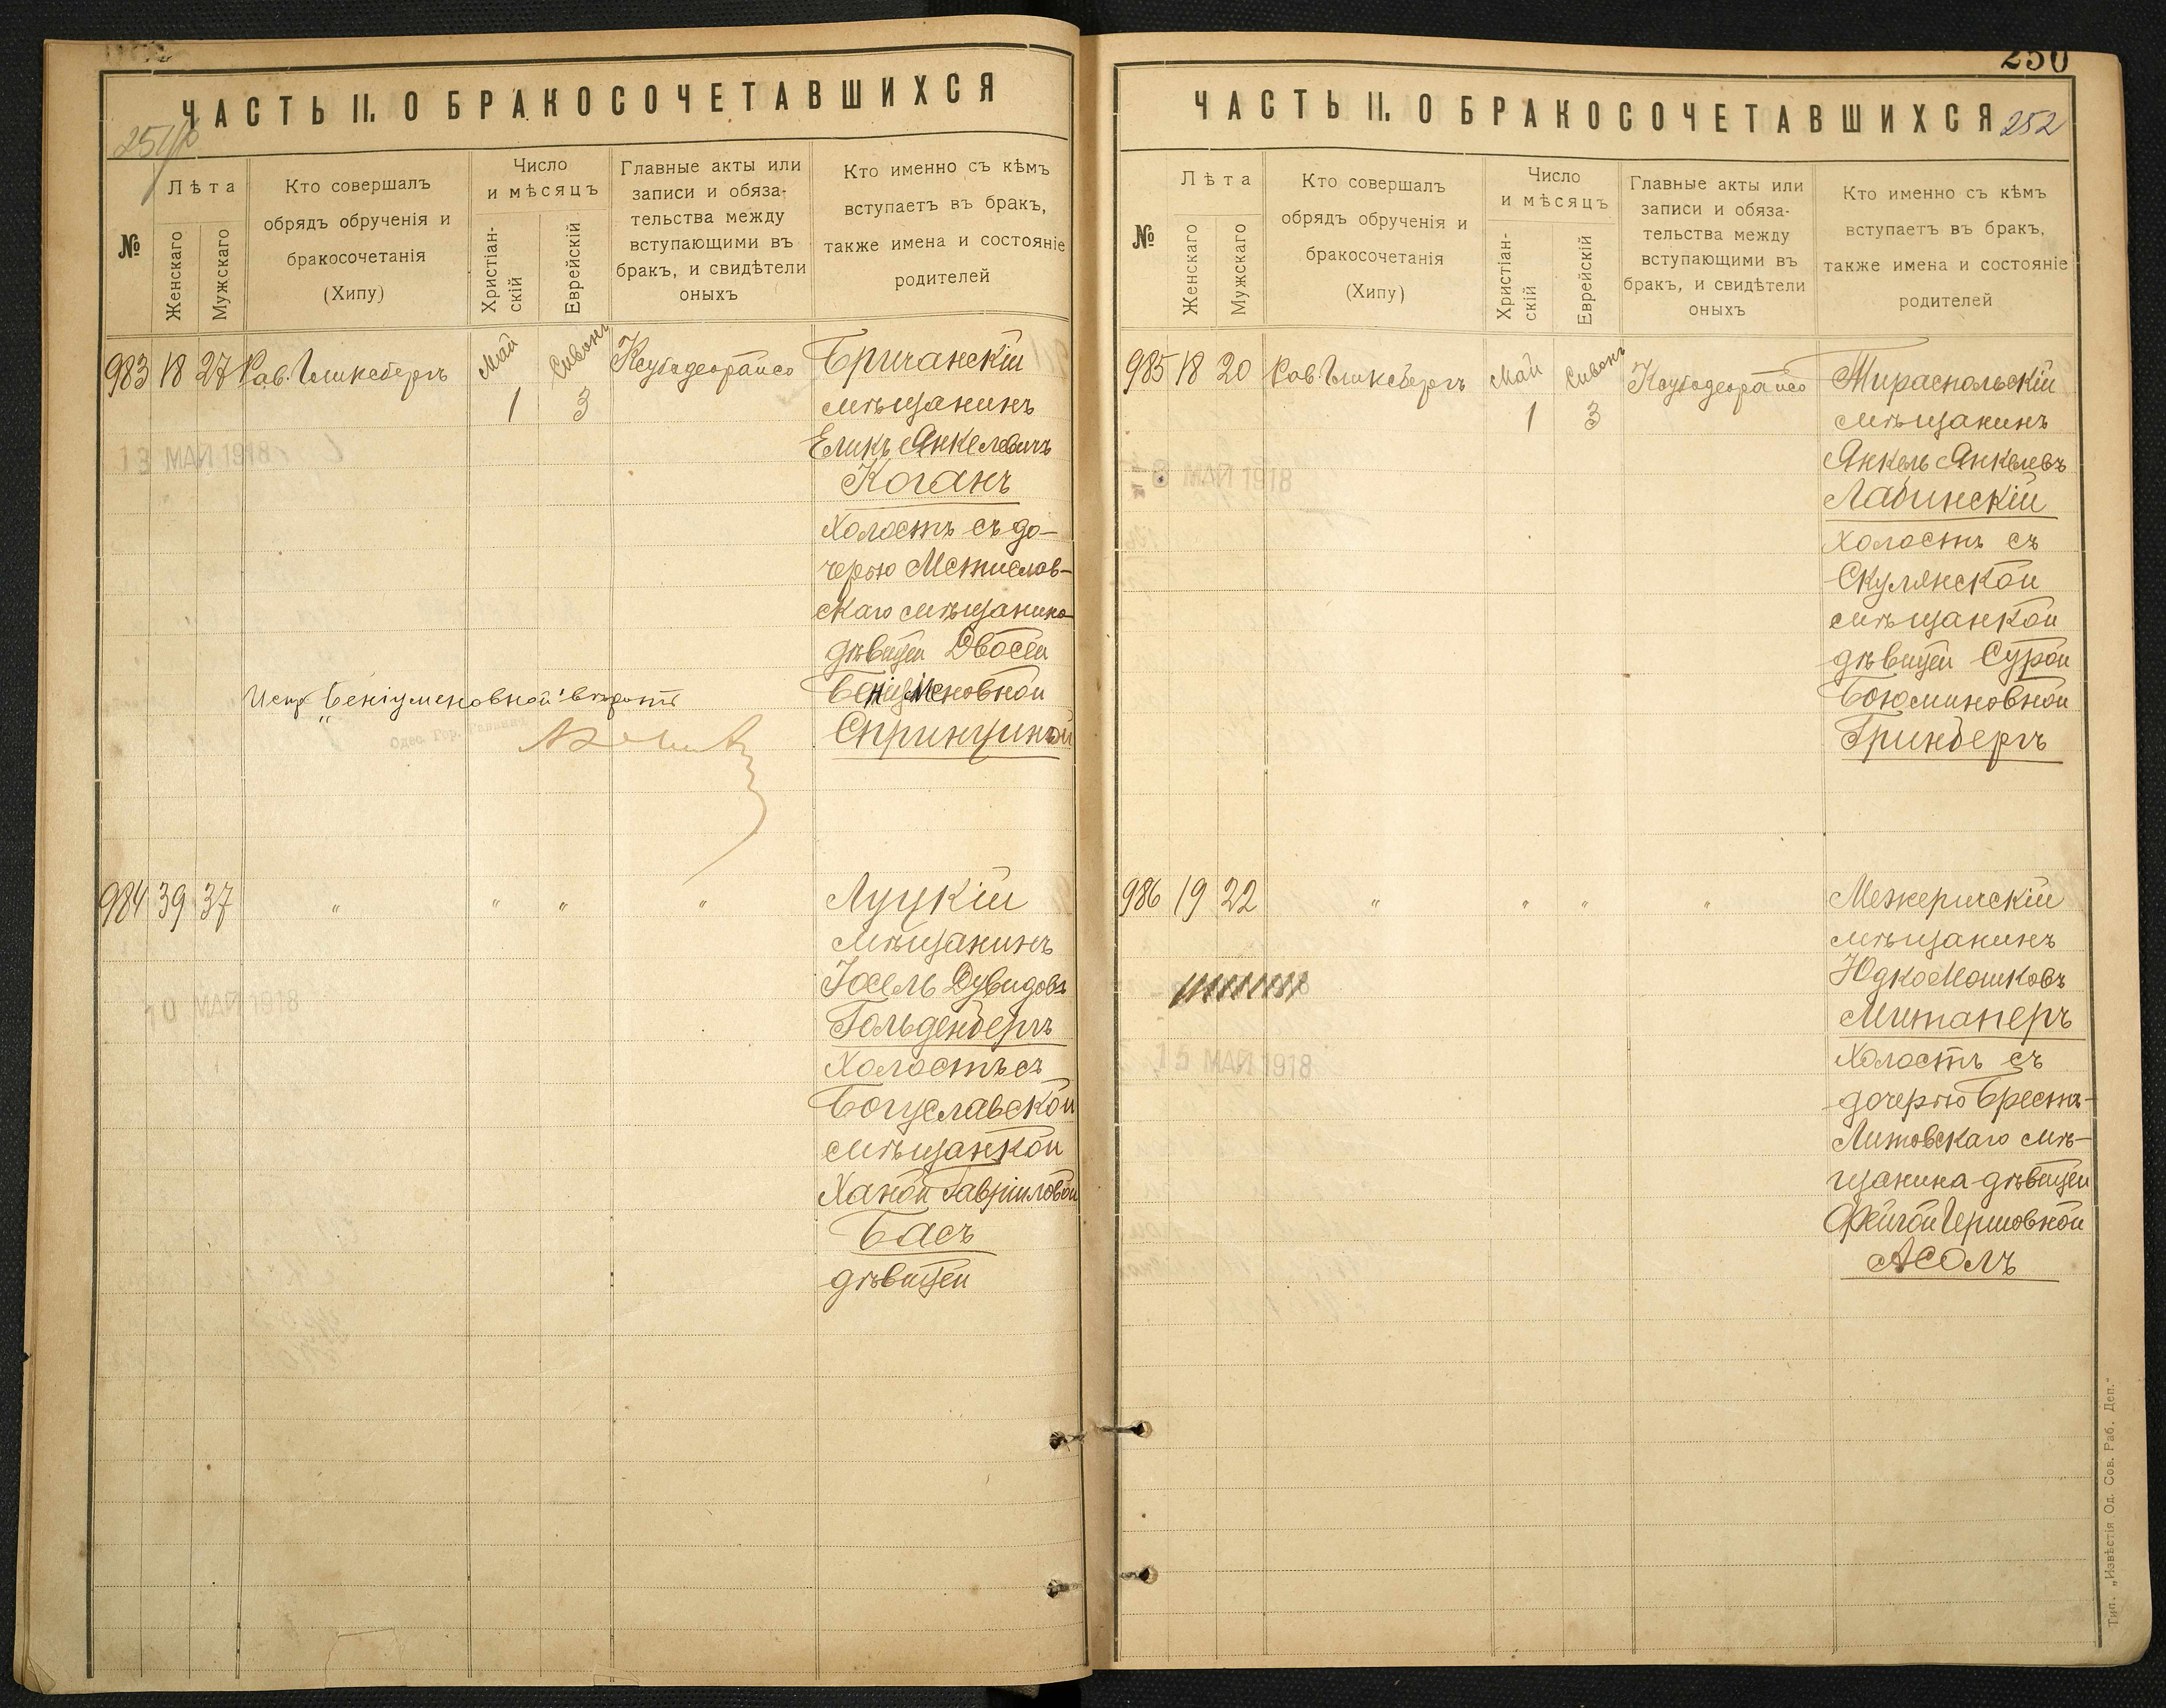 ЧАСТЬ II. О БРАКОСОЧЕТАВШИХСЯ
№
Лѣта
Женскаго
Мужскаго
Кто совершалъ
обрядъ обрученія и
бракосочетанія
(Хипу)
Число
и мѣсяцъ
Христіан-
скій
Еврейскій
Главные акты или
записи и обяза-
тельства между
вступающими въ
бракъ, и свидѣтели
оныхъ
Кто именно съ кѣмъ
вступаетъ въ бракъ,
также имена и состояніе
родителей
983 18 27 Рав. Гликсбергъ Май 1 Сивонъ 3 Ксубедеорайсо
Бричанскій
мѣщанинъ
Еликъ Янкелевичъ
Коганъ
холостъ съ до-
черью Мстислав-
скаго мѣщанина
дѣвицей Двосей
Беніуменовной
Спринциной
Испр Беніуменовной вѣрить
13 МАЙ 1918
984 39 37 " " " "
Луцкій
мѣщанинъ
Іосель Дувидовъ
Гольденбергъ
Холостъ съ
Богуславской
мѣщанкой
Ханой Гавріиловой
Басъ
дѣвицей
10 МАЙ 1918
250
ЧАСТЬ II. О БРАКОСОЧЕТАВШИХСЯ 252
№
Лѣта
Женскаго
Мужскаго
Кто совершалъ
обрядъ обрученія и
бракосочетанія
(Хипу)
Число
и мѣсяцъ
Христіан-
скій
Еврейскій
Главные акты или
записи и обяза-
тельства между
вступающими въ
бракъ, и свидѣтели
оныхъ
Кто именно съ кѣмъ
вступаетъ въ бракъ,
также имена и состояніе
родителей
985 18 20 Рав Гликсбергъ Май 1 Сивонъ 3 Ксубедеорайсо
Тираспольскій
мѣщанинъ
Янкель Янкелевъ
Лабинскій
холостъ съ
Скулянской
мѣщанкой
дѣвицей Сурой
Боюминовной
Гринбергъ
8 МАЙ 1918
986 19 22 " " " "
Межеричскій
мѣщанинъ
Юдко Мошковъ
Митаперъ
Холостъ съ
дочерью Брестъ-
Литовскаго мѣ-
щанина дѣвицей
Фейгой Гершовной
Асолъ
15 МАЙ 1918
Тип. „Извѣстія Од. Сов. Раб. Деп."